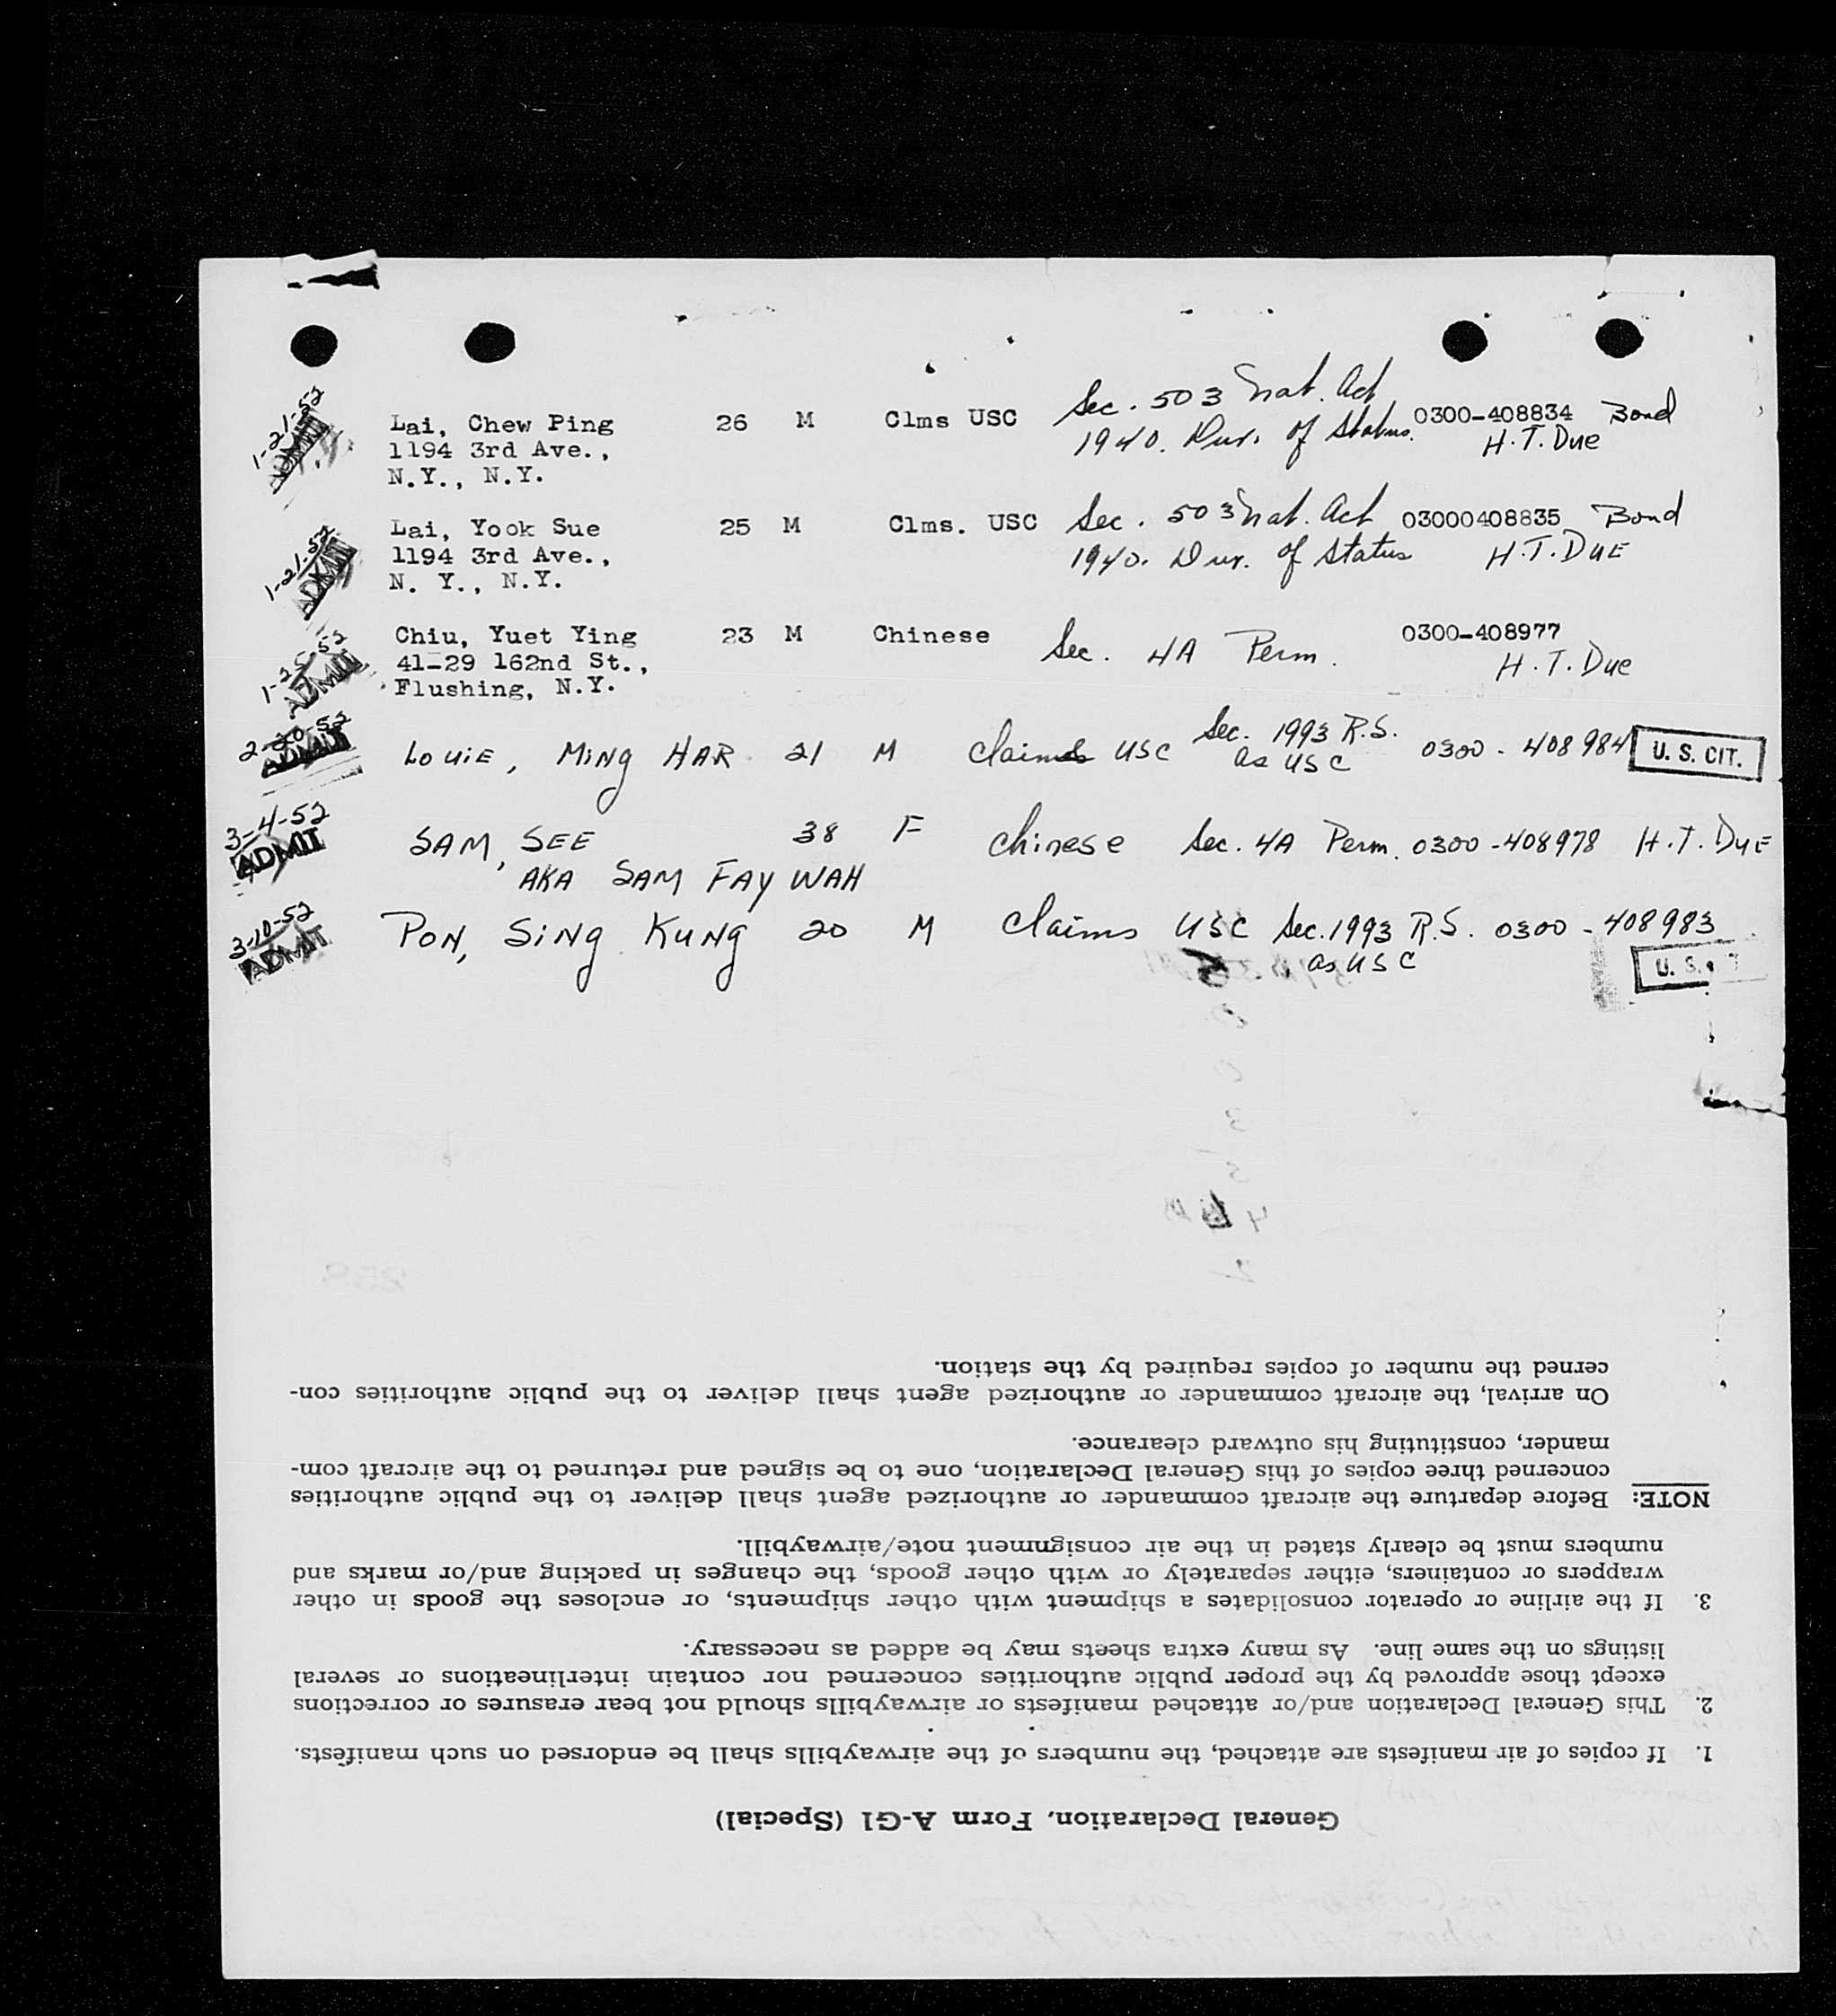 1-21-52
ADMIT
Lai, Chew Ping 26 M Clms USC Sec. 503 Nat. Act 0300-408834 Bond
1194 3rd Ave., 1940. Dur. of Status. H.T. Due
N.Y., N.Y.
1-21-52
ADMIT
Lai, Yook Sue 25 M Clms. USC Sec. 503 Nat. Act 03000408835 Bond
1194 3rd Ave., 1940. Dur. of Status H.T. DUE
N. Y., N.Y.
ADMIT
Chiu, Yuet Ying 23 M Chinese Sec. 4A Perm. 0300-408977
41-29 162nd St., H.T. Due
Flushing, N.Y.
2-20-52
ADMIT
LOUIE, MING HAR 21 M Claims USC Sec. 1993 R.S. 0300-408984 U. S. CIT.
as USC
3-4-52
ADMIT
SAM, SEE 38 F Chinese Sec. 4A Perm. 0300-408978 H.T. DUE
AKA SAM FAY WAH
3-10-52
ADMIT
PON, SING KUNG 20 M Claims USC Sec. 1993 R.S. 0300-408983
as USC U. S.
General Declaration, Form A-G1 (Special)
1. If copies of air manifests are attached, the numbers of the airwaybills shall be endorsed on such manifests.
2. This General Declaration and/or attached manifests or airwaybills should not bear erasures or corrections
except those approved by the proper public authorities concerned nor contain interlineations or several
listings on the same line. As many extra sheets may be added as necessary.
3. If the airline or operator consolidates a shipment with other shipments, or encloses the goods in other
wrappers or containers, either separately or with other goods, the changes in packing and/or marks and
numbers must be clearly stated in the air consignment note/airwaybill.
NOTE: Before departure the aircraft commander or authorized agent shall deliver to the public authorities
concerned three copies of this General Declaration, one to be signed and returned to the aircraft com-
mander, constituting his outward clearance.
On arrival, the aircraft commander or authorized agent shall deliver to the public authorities con-
cerned the number of copies required by the station.